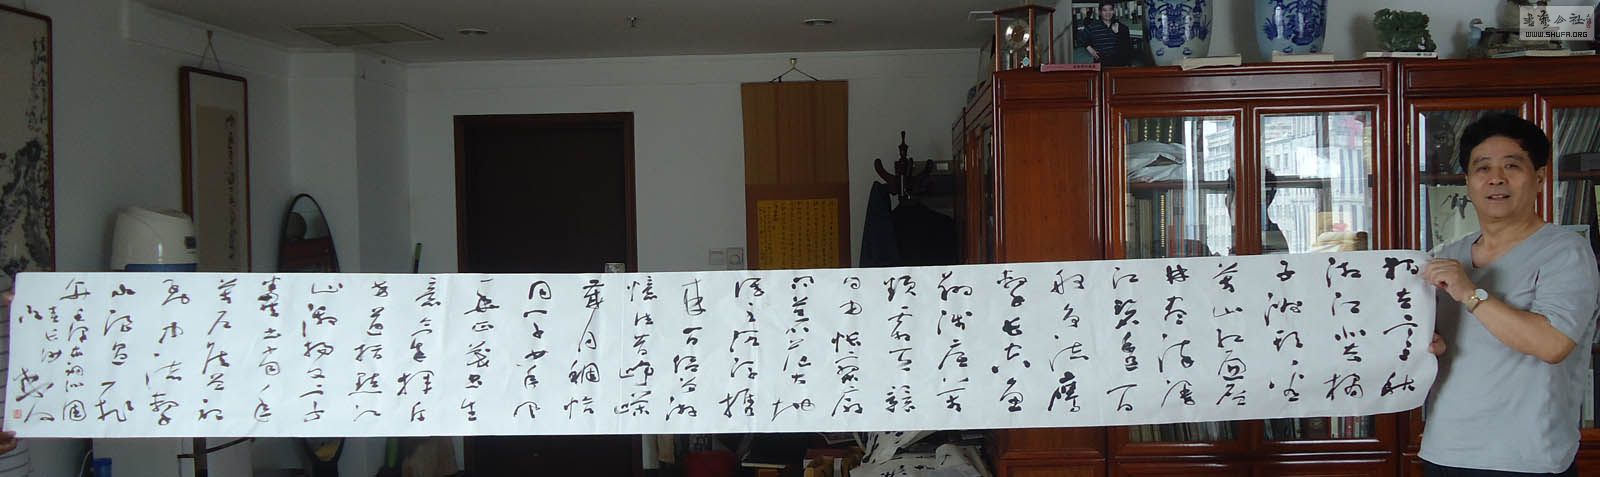 独立寒秋
湘江北去橘
子洲头看
万山红遍层
林尽染漫
江碧透百
舸争流鹰
击长空鱼
翔浅底万
类霜天竞
自由怅寥廓
问苍茫大地
谁主沉浮携
来百侣曾游
忆往昔峥嵘
岁月稠恰
同学少年风
华正茂书生
意气挥斥
方遒指点江
山激扬文字
粪土当年
万户侯曾记
到中流击
水浪遏飞舟
毛泽东词沁园
春长沙
书艺公社
WWW.SHUFA.ORG